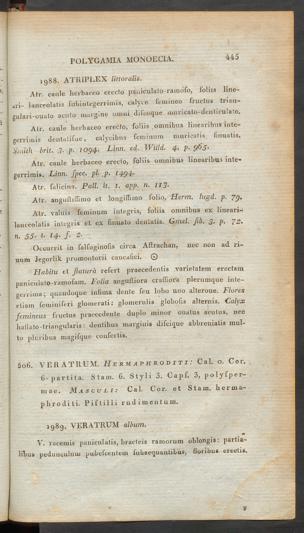 POLYGAMIA MONOECIA. 445
1988. ATRIPLEX littoralis.
Atr. caule herbaceo erecto paniculato-ramoso, foliis line-
ari-lanceolatis subintegerrimis, calyce femineo fructus trian-
gulari-ovato acuto margine omni discque muricato-denticulato.
Atr. caule herbaceo erecto, foliis omnibus linearibus inte-
gerrimis dentatisue, calycibus seminum muricatis sinuatis.
Smith brit. 3. p. 1094. Linn. ed. Willd. 4. p. 965.
Atr. caule herbaceo erecto, foliis omnibus linearibus inte-
gerrimis. Linn. spec. pl. p. 1494.
Atr. salicina. Pall. it. 1. app. n. 113.
Atr. angustissimo et longissimo folio, Herm. lugd. p. 79.
Atr. valuis seminum integris, foliis omnibus ex lineari-
lanceolatis integris et ex sinuato dentatis. Gmel. sib. 3. p. 72.
n. 55. t. 14. f. 2.
Occurrit in salsuginosis circa Astrachan, nec non ad ri-
uum Jegorlik promontorii caucasici. ☉
Habitu et statura refert praecedentis varietatem erectam
paniculato-ramosam. Folia angustiora crassiora plerumque inte-
gerrima; quandoque infima dente seu lobo uno alteroue. Flores
etiam seminiferi glomerati: glomerulis globosis alternis. Calyx
femineus fructus praecedente duplo minor ouatus acutus, nec
hastato-triangularis: dentibus marginis discique abbreuiatis mul-
to pluribus magisque consertis.
506. VERATRUM. HERMAPHRODITI: Cal. 0. Cor.
6-partita. Stam. 6. Styli 3. Caps. 3, polysper-
mae. MASCULI: Cal. Cor. et Stam. herma-
phroditi. Pistilli rudimentum.
1989. VERATRUM album.
V. racemis paniculatis, bracteis ramorum oblongis: partia-
libus pedunculum pubescentem subsequantibus, floribus erectis.